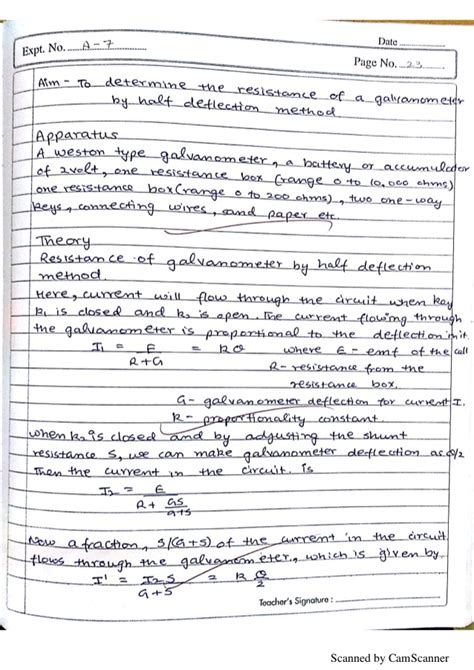 Expt. No. A-7
Date
Page No. 23
Aim - To determine the resistance of a galvanometer
by half deflection method
Apparatus
A weston type galvanometer, a battery or accumulator
of 2volt, one resistance box (range 0 to 10,000 ohms)
one resistance box (range 0 to 200 ohms), two one-way
keys, connecting wires, sand paper etc.
Theory
Resistance of galvanometer by half deflection
method.
Here, current will flow through the circuit when key
k₁ is closed and k₂ is open. The current flowing through
the galvanometer is proportional to the deflection in it.
I₁ = E / R+G = kθ where E - emf of the cell
R - resistance from the
resistance box.
G - galvanometer deflection for current I.
k - proportionality constant.
when k₂ is closed and by adjusting the shunt
resistance S, we can make galvanometer deflection as θ/2
Then the current in the circuit is
I₂ = E / R + GS / G+S
Now a fraction, S/(G+S) of the current in the circuit
flows through the galvanometer, which is given by
I' = I₂ S / G+S = k θ/2
Teacher's Signature :
Scanned by CamScanner